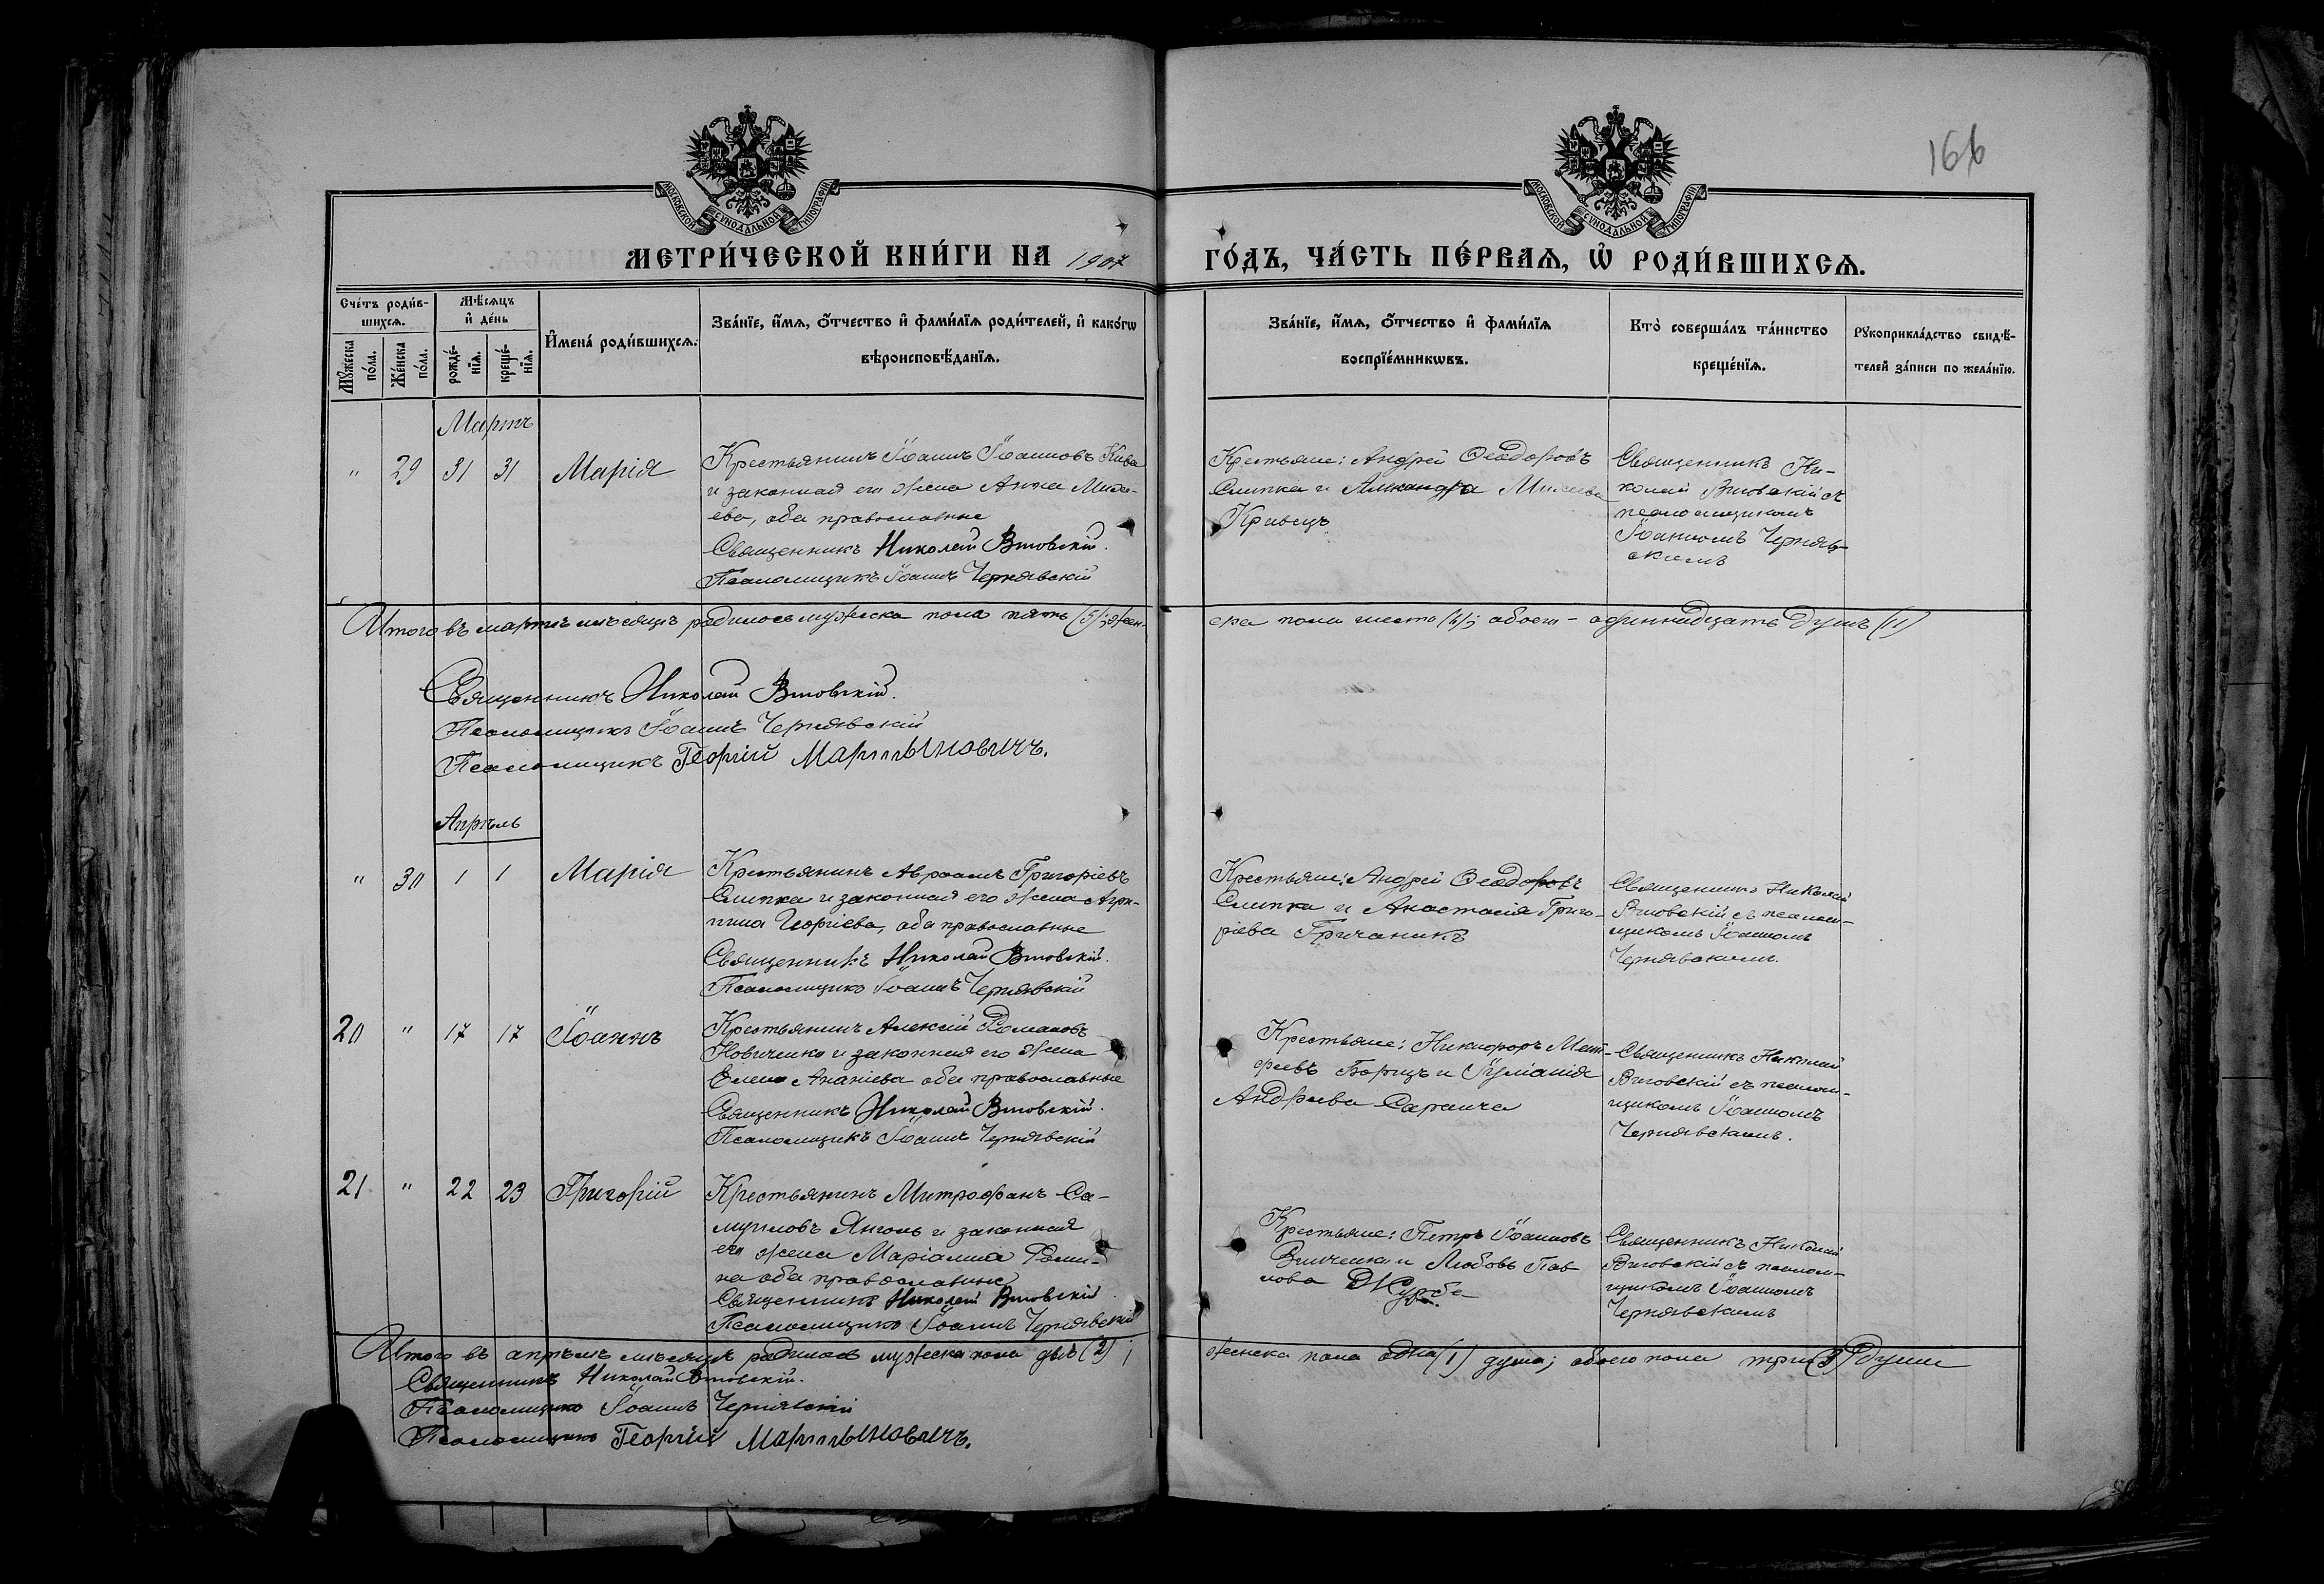 166
МОСКОВСКОЙ СѴНОДАЛЬНОЙ ТИПОГРАФІИ
МОСКОВСКОЙ СѴНОДАЛЬНОЙ ТИПОГРАФІИ
МЕТРИ́ЧЕСКОЙ КНИ́ГИ НА 1907 ГО́ДЪ, ЧА́СТЬ ПЕ́РВАѦ, Ѽ РОДИ́ВШИХСѦ.
Сче́тъ роди́в-
шихсѧ.
Мꙋ́жеска по́ла.
Же́нска по́ла.
Мѣ́сѧцъ и҆ де́нь
рожде́-
нїѧ.
креще́-
нїѧ.
И҆мена̀ роди́вшихсѧ.
Зва́нїе, и҆́мѧ, ѻ҆́тчество и҆ фами́лїѧ роди́телей, и҆ како́гѡ
вѣроисповѣ́данїѧ.
Зва́нїе, и҆́мѧ, ѻ҆́тчество и҆ фами́лїѧ
воспрїе́мникѡвъ.
Кто̀ соверша́лъ та́инство
креще́нїѧ.
Рꙋкоприкла́дство свидѣ́-
телей за́писи по жела́нїю.
Мартъ
" 29 31 31 Марія
Крестьянинъ Іоаннъ Іоанновъ
и законная его жена Анна
ева, оба православные
Священникъ Николай
Псаломщикъ Іоаннъ Чернявскій
Крестьяне: Андрей Ѳеодоровъ
Слипка и Александра
Кравецъ
Священникъ Ни-
колай съ
псаломщикомъ
Іоанномъ Черняв-
скимъ
Итого въ мартѣ мѣсяцѣ родилось мужеска пола пять (5); жен-
ска пола шесть (6); обоего - одиннадцать душъ (11)
Священникъ Николай
Псаломщикъ Іоаннъ Чернявскій
Псаломщикъ Георгій Мартыновичъ.
Апрѣль
" 30 1 1 Марія
Крестьянинъ Авраамъ Григоріевъ
Слипка и законная его жена Агри-
пина Георгіева, оба православные
Священникъ Николай
Псаломщикъ Іоаннъ Чернявскій
Крестьяне: Андрей Ѳеодоровъ
Слипка и Анастасія Григо-
ріева Гричаникъ
Священникъ Николай
съ псалом-
щикомъ Іоанномъ
Чернявскимъ.
20 " 17 17 Іоаннъ
Крестьянинъ Алексій Романовъ
Новиченко и законная его жена
Елена Ананіева оба православные
Священникъ Николай
Псаломщикъ Іоаннъ Чернявскій
Крестьяне: Никифоръ Мат-
фіевъ Борицъ и Іуліанія
Андреева Саранча
Священникъ Николай
съ псалом-
щикомъ Іоанномъ
Чернявскимъ.
21 " 22 23 Григорій
Крестьянинъ Митрофанъ Са-
муиловъ Янголь и законная
его жена Маріанна Фоми-
на оба православные
Священникъ Николай
Псаломщикъ Іоаннъ Чернявскій
Крестьяне: Петръ Іоанновъ
и Любовь Пав
лова Джурба
Священникъ Николай
съ псалом-
щикомъ Іоанномъ
Чернявскимъ
Итого въ апрѣлѣ мѣсяцѣ родилось мужеска пола двѣ (2);
женска пола одна (1) душа; обоего пола три (3) души
Священникъ Николай
Псаломщикъ Іоаннъ Чернявскій
Псаломщикъ Георгій Мартыновичъ.